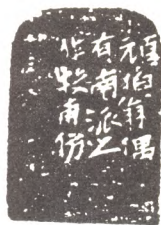 頑伯每偶
有南派之
作牧甫仿